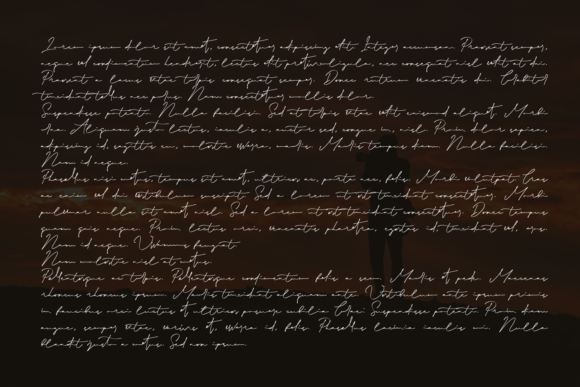 Lorem ipsum dolor sit amet, consectetuer adipiscing elit. Integer accumsan. Praesent semper,
neque vel condimentum hendrerit, lectus elit pretium ligula, nec consequat nisl velit at dui.
Praesent a lacus vitae turpis consequat semper. Donec rutrum venenatis dui.
tincidunt tellus nec purus. Nam consectetuer mollis dolor.
Suspendisse potenti. Nulla facilisi. Sed at turpis vitae velit euismod aliquet. Morbi
Aliquam justo lectus, iaculis a, auctor sed, congue in, nisl. Proin dolor sapien,
adipiscing id, sagittis eu, molestie viverra, mauris. Mauris tempus diam. Nulla facilisi.
Nam id neque.
Phasellus nisi metus, tempus sit amet, ultricies ac, porta nec, felis. Morbi volutpat. Cras
ac enim vel dui vestibulum suscipit. Sed a lorem at est tincidunt consectetuer. Morbi
pulvinar nulla sit amet nisl. Sed a lorem at est tincidunt consectetuer. Donec tempus
quam quis neque. Proin lectus orci, venenatis pharetra, egestas id, tincidunt vel, eros.
Nam id neque. Vivamus feugiat.
Nam molestie nisl at metus.
Pellentesque eu turpis. Pellentesque condimentum felis a sem. Mauris et pede. Maecenas
rhoncus rhoncus ipsum. Mauris tincidunt aliquam ante. Vestibulum ante ipsum primis
in faucibus orci luctus et ultrices posuere cubilia Curae; Suspendisse potenti. Proin diam
augue, semper vitae, varius et, viverra id, felis. Phasellus lacinia iaculis mi. Nulla
blandit justo a metus. Sed non ipsum.